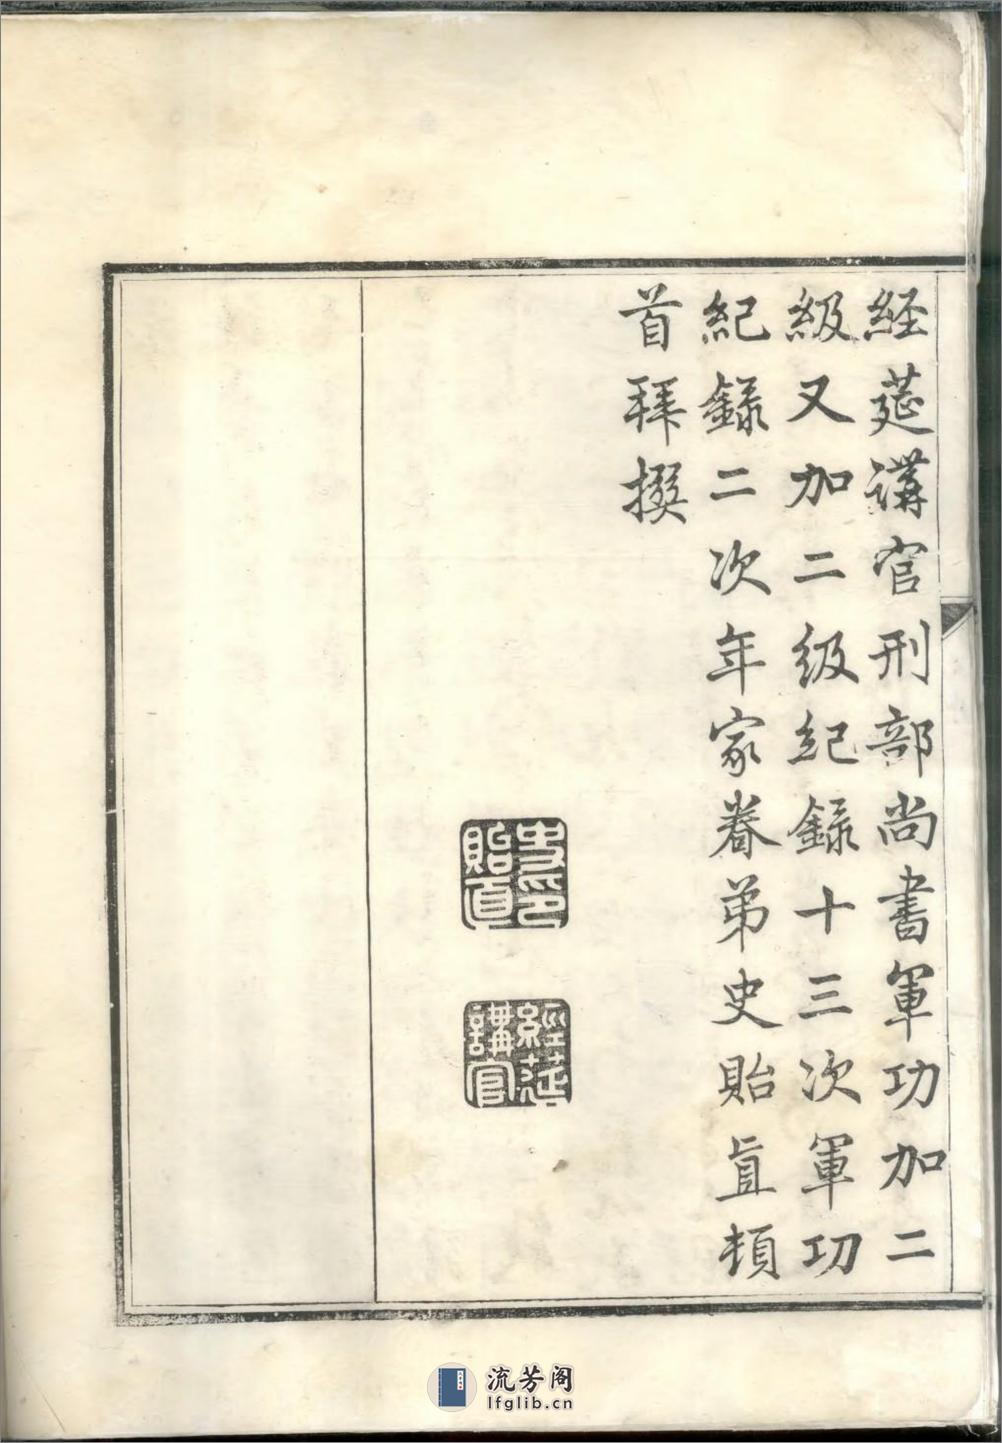 経莚講官刑部尚書軍功加二
級又加二級紀錄十三次軍功
紀錄二次年家眷弟史貽直頓
首拜撰
史貽直印
經莚講官
流芳阁
lfglib.cn